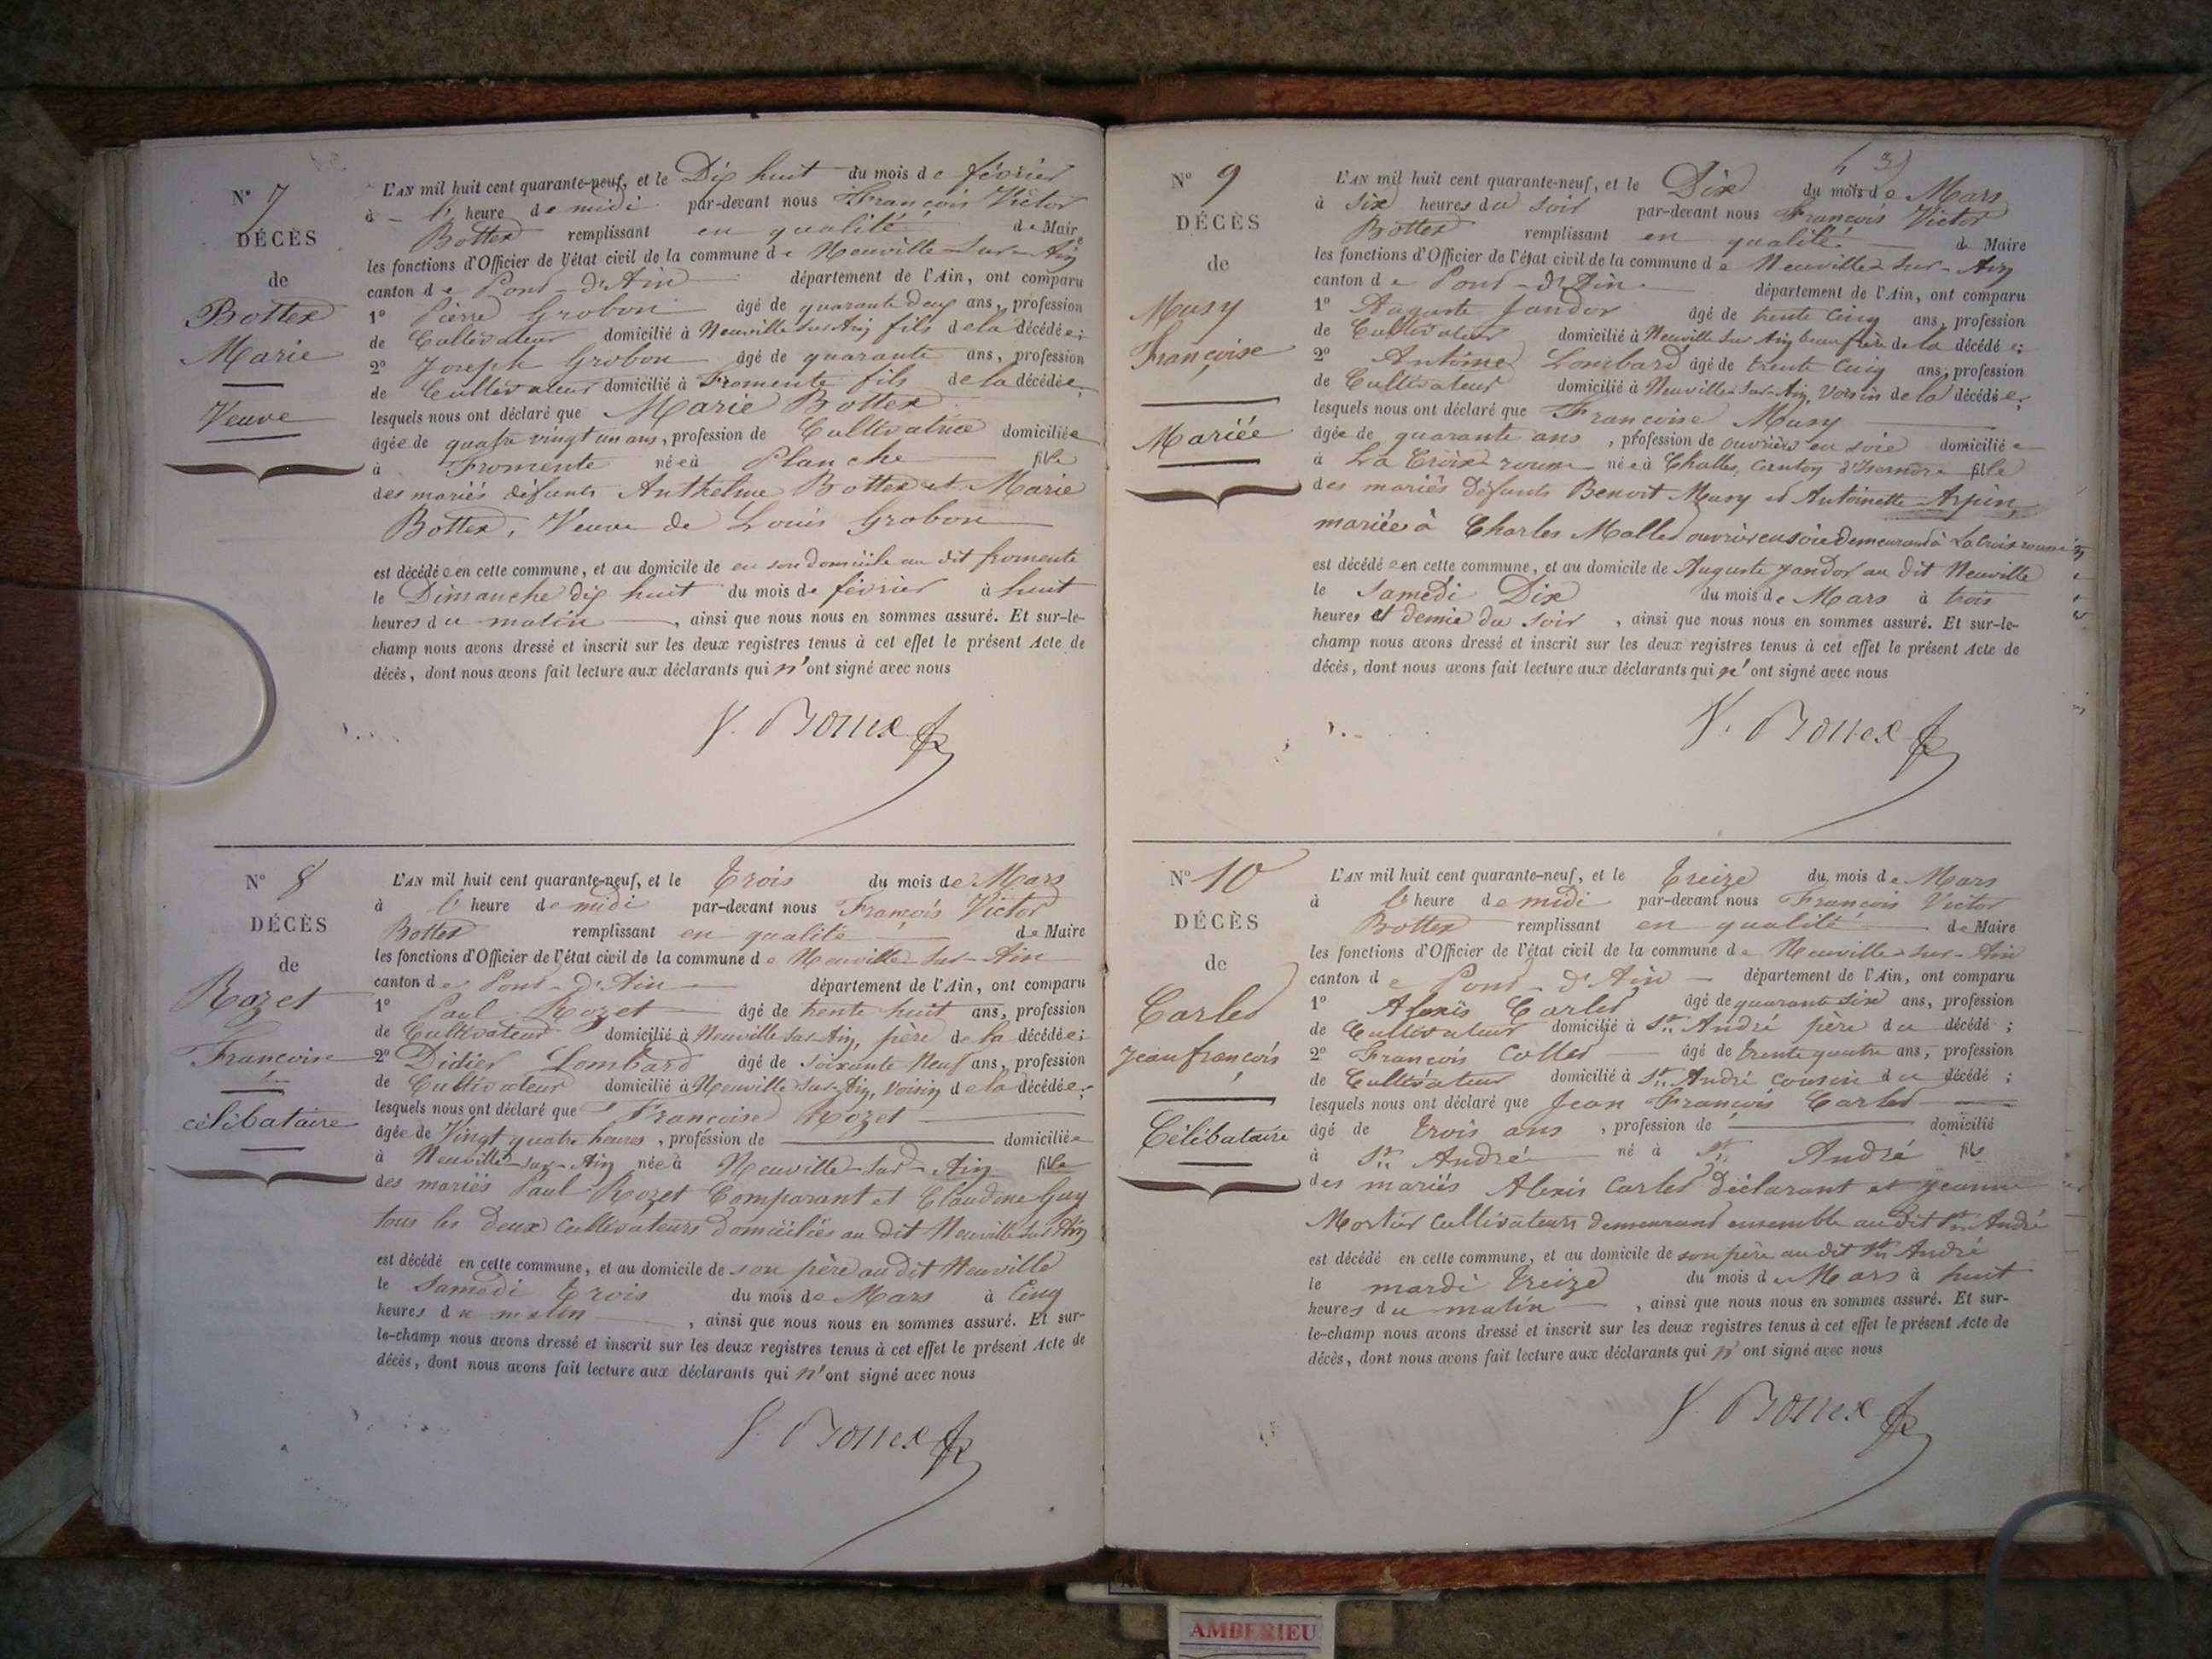 N° 7
DÉCÈS
de
Bottex
Marie
Veuve
L'AN mil huit cent quarante-neuf, et le Dix huit du mois de février
à l' heure de midi par-devant nous François Victor
Bottex remplissant en qualité de Maire
les fonctions d'Officier de l'état civil de la commune de Neuville-sur-Ain
canton de Pont-d'Ain département de l'Ain, ont comparu
1° Pierre Grobon âgé de quarante deux ans, profession
de Cultivateur domicilié à Neuville sur Ain fils de la décédée;
2° Joseph Grobon âgé de quarante ans, profession
de Cultivateur domicilié à Fromente fils de la décédée;
lesquels nous ont déclaré que Marie Bottex
âgée de quatre vingt un ans, profession de Cultivatrice domiciliée
à Fromente née à Planche fille
des mariés défunts Anthelme Bottex et Marie
Bottex, Veuve de Louis Grobon
est décédée en cette commune, et au domicile de en son domicile au dit fromente
le Dimanche dix huit du mois de février à huit
heures du matin, ainsi que nous nous en sommes assuré. Et sur-le-
champ nous avons dressé et inscrit sur les deux registres tenus à cet effet le présent Acte de
décès, dont nous avons fait lecture aux déclarants qui n'ont signé avec nous
V. Bottex
N° 8
DÉCÈS
de
Rozet
Françoise
célibataire
L'AN mil huit cent quarante-neuf, et le Trois du mois de Mars
à l' heure de midi par-devant nous François Victor
Bottex remplissant en qualité de Maire
les fonctions d'Officier de l'état civil de la commune de Neuville-sur-Ain
canton de Pont-d'Ain département de l'Ain, ont comparu
1° Paul Rozet âgé de trente huit ans, profession
de Cultivateur domicilié à Neuville sur-Ain, père de la décédée;
2° Didier Lombard âgé de soixante Neuf ans, profession
de Cultivateur domicilié à Neuville sur-Ain, voisin de la décédée;
lesquels nous ont déclaré que Françoise Rozet
âgée de Vingt quatre heures, profession de domiciliée
à Neuville-sur-Ain née à Neuville-sur-Ain fille
des mariés Paul Rozet Comparant et Claudine Guy
tous les deux cultivateurs domiciliés au dit Neuville sur Ain
est décédé en cette commune, et au domicile de son père au dit Neuville
le Samedi trois du mois de Mars à Cinq
heures du matin, ainsi que nous nous en sommes assuré. Et sur-
le-champ nous avons dressé et inscrit sur les deux registres tenus à cet effet le présent Acte de
décès, dont nous avons fait lecture aux déclarants qui n'ont signé avec nous
V. Bottex
N° 9
DÉCÈS
de
Musy
Françoise
Mariée
L'AN mil huit cent quarante-neuf, et le Dix du mois de Mars
à six heures du soir par-devant nous François Victor
Bottex remplissant en qualité de Maire
les fonctions d'Officier de l'état civil de la commune de Neuville-sur-Ain
canton de Pont-d'Ain département de l'Ain, ont comparu
1° Auguste Jandor âgé de trente cinq ans, profession
de Cultivateur domicilié à Neuville sur Ain beau frère de la décédée;
2° Antoine Lombard âgé de trente cinq ans, profession
de Cultivateur domicilié à Neuville-sur-Ain, Voisin de la décédée;
lesquels nous ont déclaré que Françoise Musy
âgée de quarante ans, profession de ouvrière en soie domiciliée
à La Croix-rousse née à Challes, Canton d'Isernore fille
des mariés défunts Benoit Musy et Antoinette Arpin,
mariée à Charles Mallet ouvrier en soie demeurant à La Croix rousse
est décédée en cette commune, et au domicile de Auguste Jandor au dit Neuville
le Samedi Dix du mois de Mars à trois
heures et demie du soir, ainsi que nous nous en sommes assuré. Et sur-le-
champ nous avons dressé et inscrit sur les deux registres tenus à cet effet le présent Acte de
décès, dont nous avons fait lecture aux déclarants qui n'ont signé avec nous
V. Bottex
N° 10
DÉCÈS
de
Carlet
Jean françois
Célibataire
L'AN mil huit cent quarante-neuf, et le Treize du mois de Mars
à l'heure de midi par-devant nous François Victor
Bottex remplissant en qualité de Maire
les fonctions d'Officier de l'état civil de la commune de Neuville-sur-Ain
canton de Pont-d'Ain département de l'Ain, ont comparu
1° Alexis Carlet âgé de quarante six ans, profession
de Cultivateur domicilié à St. André père du décédé;
2° François Collet âgé de trente quatre ans, profession
de Cultivateur domicilié à St. André cousin du décédé;
lesquels nous ont déclaré que Jean François Carlet
âgé de trois ans, profession de domicilié
à St. André né à St. André fils
des mariés Alexis Carlet déclarant et Jeanne
Mortier Cultivateurs demeurant ensemble au dit St. André
est décédé en cette commune, et au domicile de son père au dit St. André
le mardi treize du mois de Mars à huit
heures du matin, ainsi que nous nous en sommes assuré. Et sur-
le-champ nous avons dressé et inscrit sur les deux registres tenus à cet effet le présent Acte de
décès, dont nous avons fait lecture aux déclarants qui n'ont signé avec nous
V. Bottex
AMBERIEU